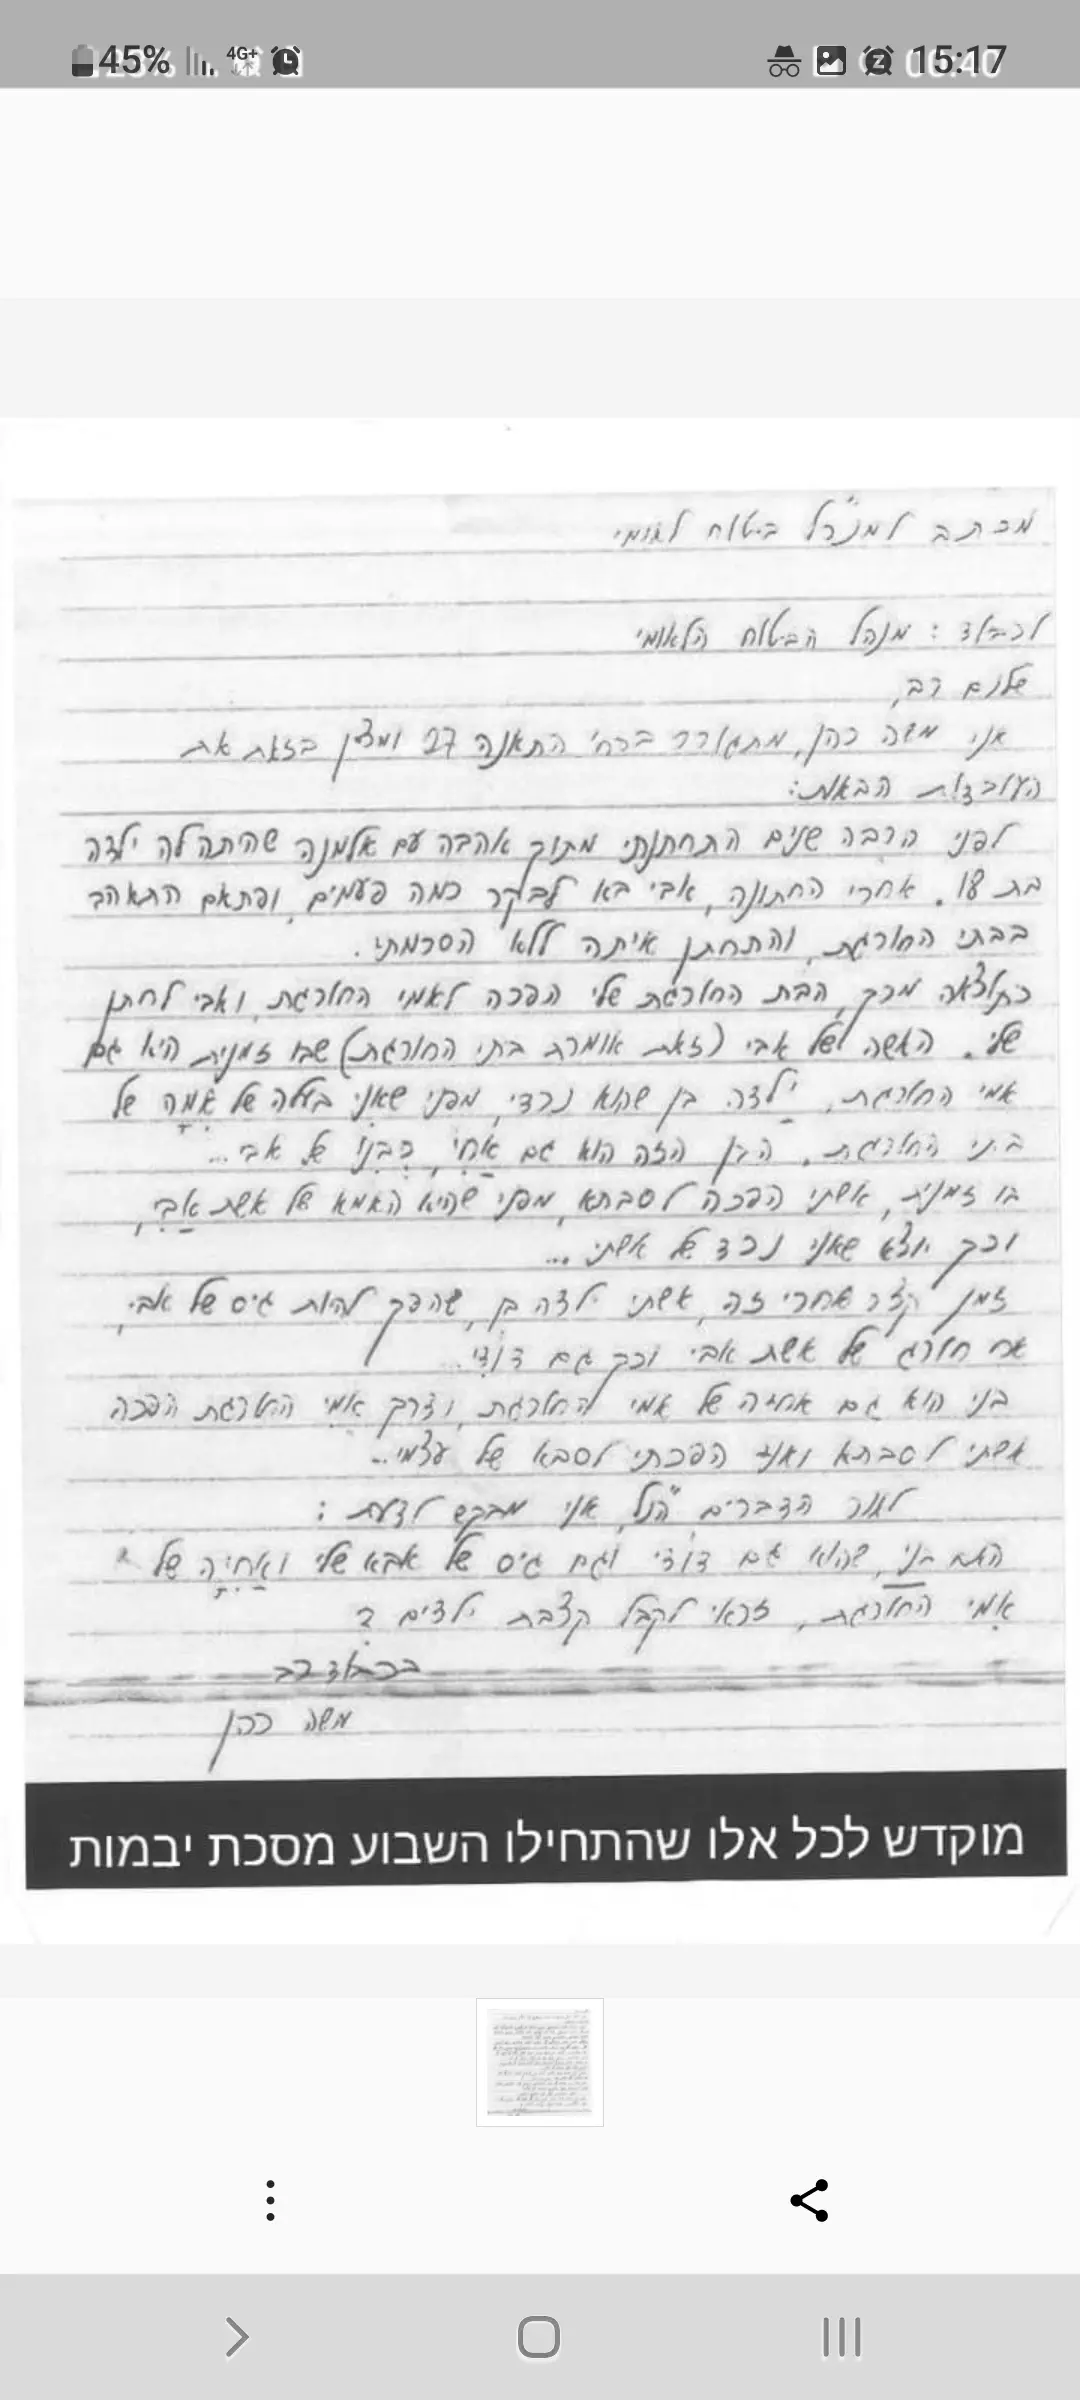 45% 4G+ 15:17
מכתב למנכ"ל ביטוח לאומי
לכבוד: מנהל הביטוח הלאומי
שלום רב,
אני משה כהן, מתגורר ברח' התאנה 27 ומציין בזאת את
העובדות הבאות:
לפני הרבה שנים התחתנתי מתוך אהבה עם אלמנה שהיתה לה ילדה
בת 18. אחרי החתונה, אבי בא לבקר כמה פעמים, ופתאם התאהב
בבתי החורגת, והתחתן איתה ללא הסכמתי.
כתוצאה מכך, הבת החורגת שלי הפכה לאמי החורגת, ואבי לחתן
שלי. האשה של אבי (זאת אומרת בתי החורגת) שבו זמנית היא גם
אמי החורגת, ילדה בן שהוא נכדי, מפני שאני בעלה של אמה של
בתי החורגת. הבן הזה הוא גם אחי, כבנו של אבי...
בו זמנית, אשתי הפכה לסבתא, מפני שהיא האמא של אשת אבי,
וכך יוצא שאני נכד של אשתי...
זמן קצר אחרי זה, אשתי ילדה בן, שהפך להות גיס של אבי,
אח חורג של אשת אבי וכך גם דודי...
בני הוא גם אחיה של אמי החורגת, ודרך אמי החורגת הפכה
אשתי לסבתא ואז הפכתי לסבא של עצמי...
לאור הדברים הנ"ל, אני מבקש לדעת:
האם בני, שהוא גם דודי וגם גיס של אבא שלי ואחיה של
אמי החורגת, זכאי לקבל קצבת ילדים?
בכבוד רב
משה כהן
מוקדש לכל אלו שהתחילו השבוע מסכת יבמות